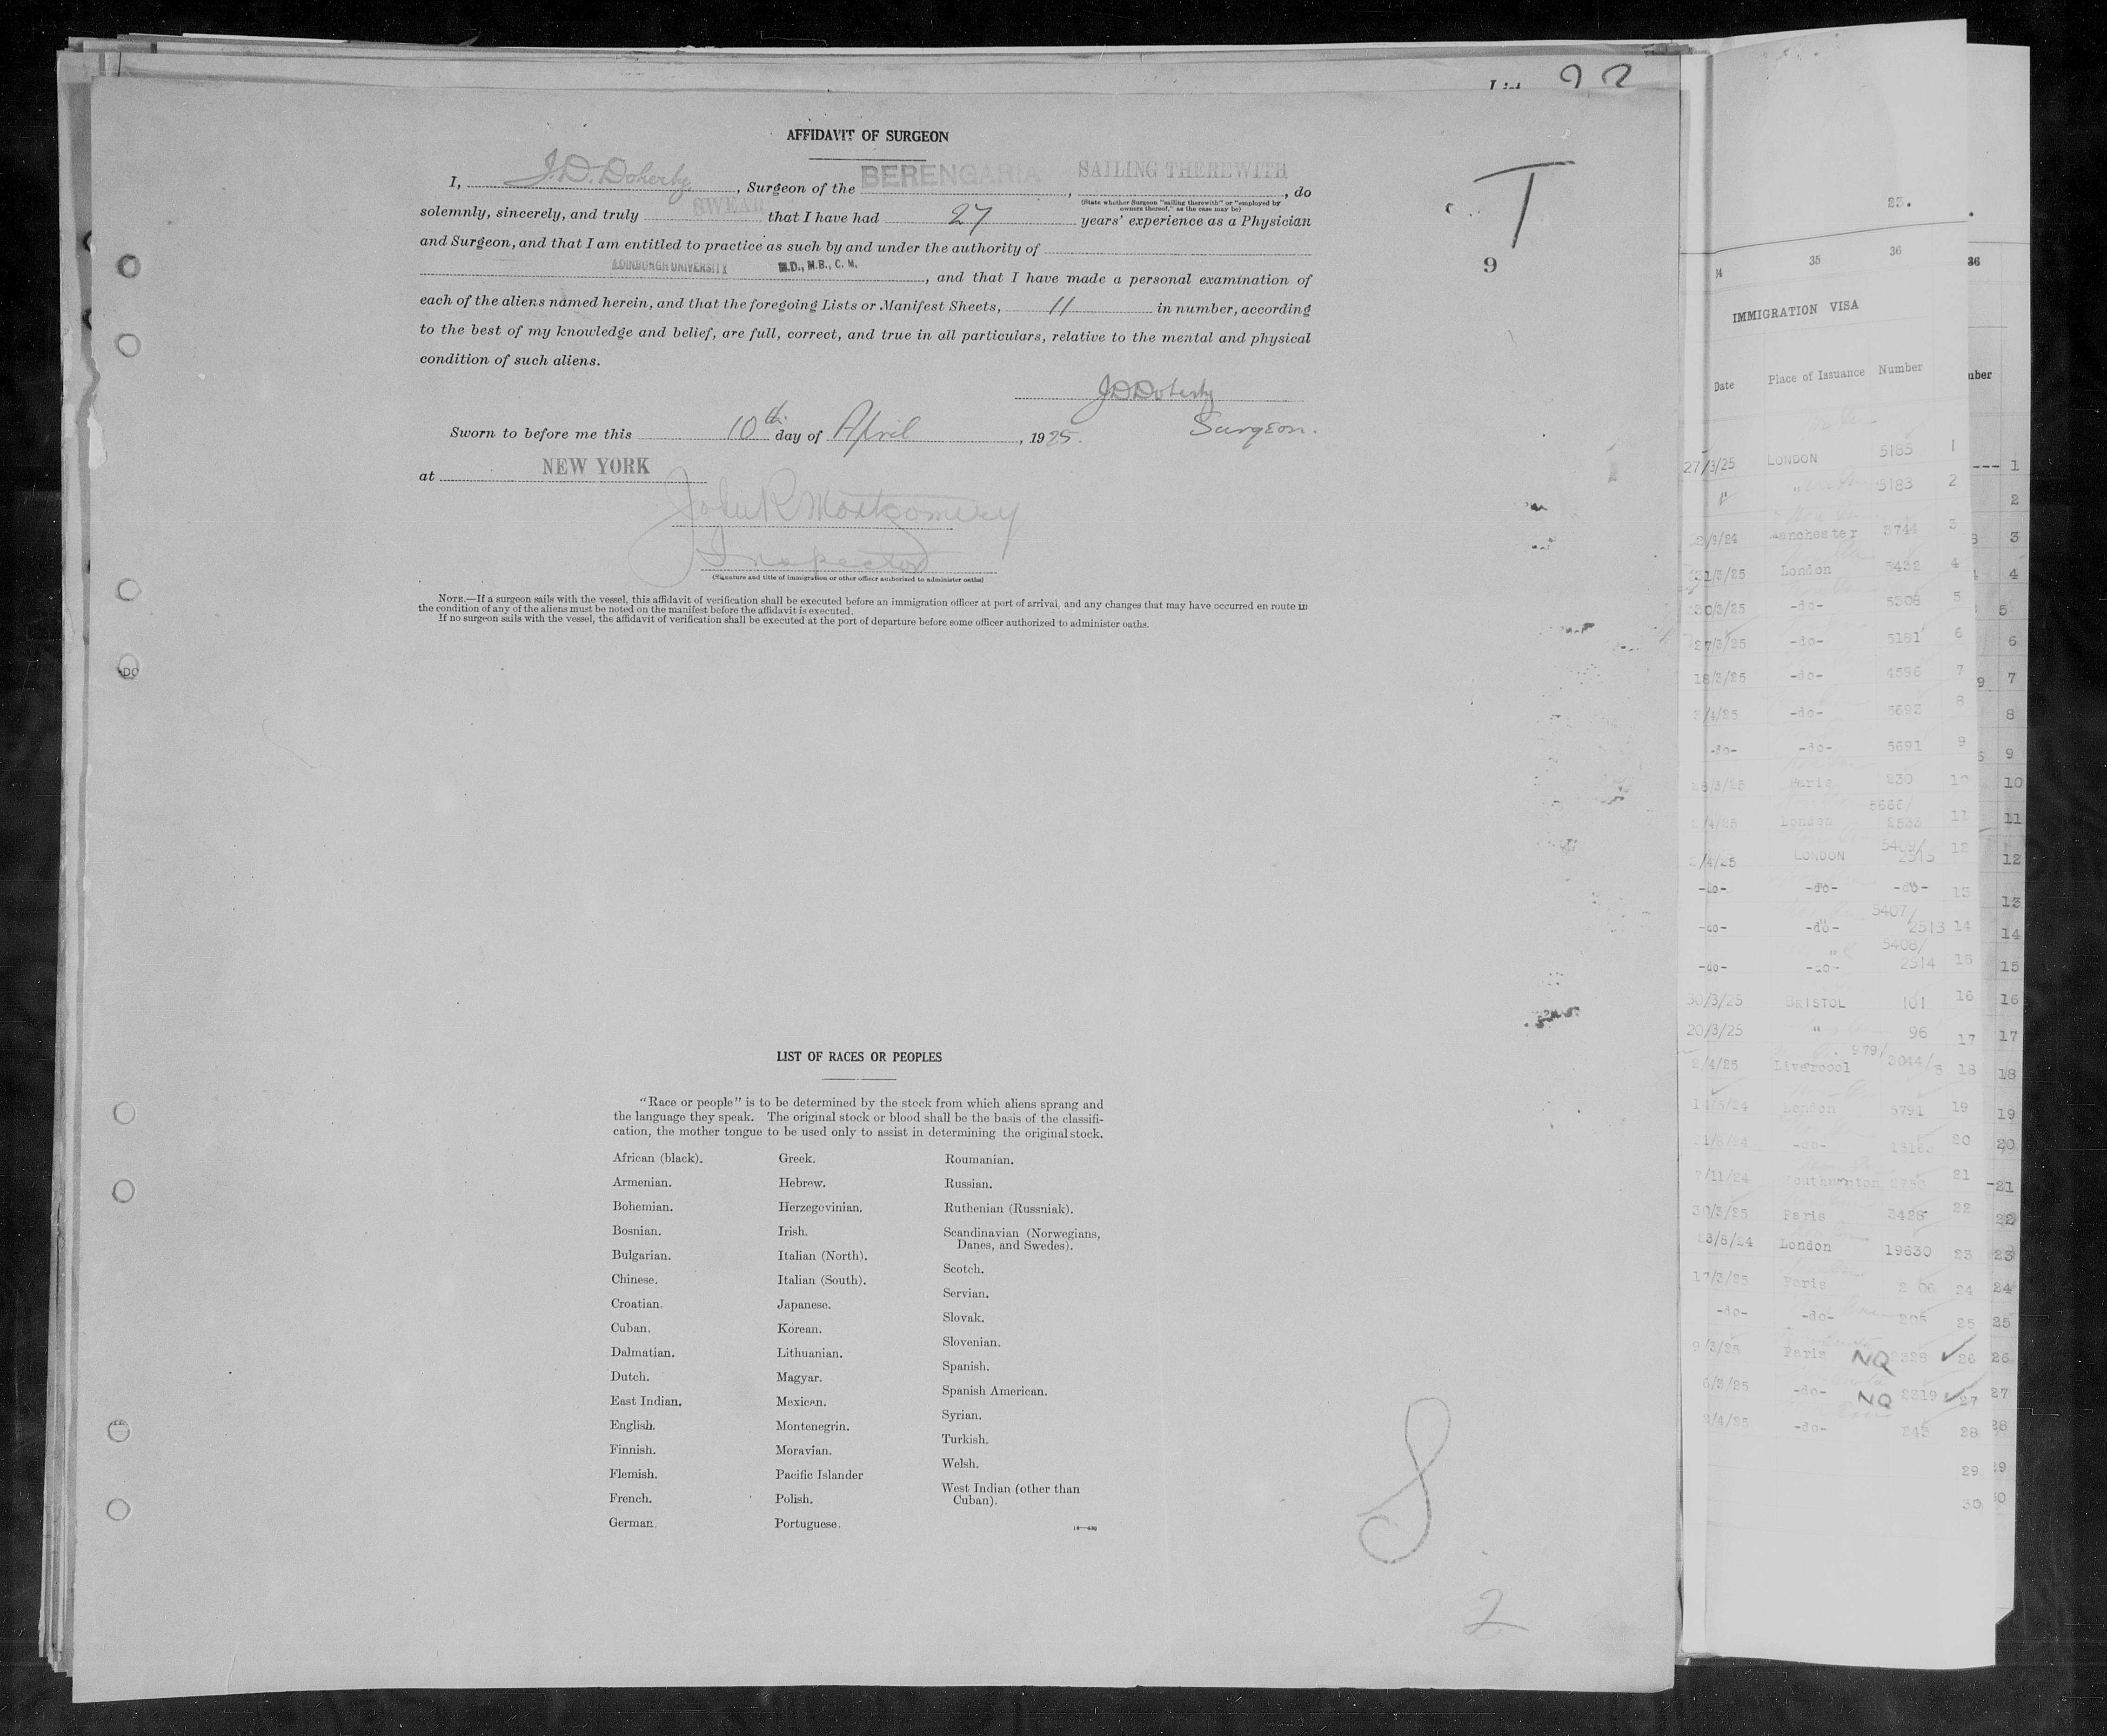 22
AFFIDAVIT OF SURGEON
I, J.D. Doherty, Surgeon of the BERENGARIA, SAILING THEREWITH, do
(State whether Surgeon "sailing therewith" or "employed by
owners thereof," as the case may be)
solemnly, sincerely, and truly SWEAR that I have had 27 years' experience as a Physician
and Surgeon, and that I am entitled to practice as such by and under the authority of
EDINBURGH UNIVERSITY M.D., M.B., C. M., and that I have made a personal examination of
each of the aliens named herein, and that the foregoing Lists or Manifest Sheets, 11 in number, according
to the best of my knowledge and belief, are full, correct, and true in all particulars, relative to the mental and physical
condition of such aliens.
JD Doherty
Surgeon.
Sworn to before me this 10th day of April, 1925.
at NEW YORK
John R Montgomery
Inspector
(Signature and title of immigration or other officer authorized to administer oaths)
NOTE.—If a surgeon sails with the vessel, this affidavit of verification shall be executed before an immigration officer at port of arrival, and any changes that may have occurred en route in
the condition of any of the aliens must be noted on the manifest before the affidavit is executed.
If no surgeon sails with the vessel, the affidavit of verification shall be executed at the port of departure before some officer authorized to administer oaths.
T
9
LIST OF RACES OR PEOPLES
"Race or people" is to be determined by the stock from which aliens sprang and
the language they speak. The original stock or blood shall be the basis of the classifi-
cation, the mother tongue to be used only to assist in determining the original stock.
African (black).
Armenian.
Bohemian.
Bosnian.
Bulgarian.
Chinese.
Croatian.
Cuban.
Dalmatian.
Dutch.
East Indian.
English.
Finnish.
Flemish.
French.
German.
Greek.
Hebrew.
Herzegovinian.
Irish.
Italian (North).
Italian (South).
Japanese.
Korean.
Lithuanian.
Magyar.
Mexican.
Montenegrin.
Moravian.
Pacific Islander
Polish.
Portuguese.
Roumanian.
Russian.
Ruthenian (Russniak).
Scandinavian (Norwegians,
Danes, and Swedes).
Scotch.
Servian.
Slovak.
Slovenian.
Spanish.
Spanish American.
Syrian.
Turkish.
Welsh.
West Indian (other than
Cuban).
8
2
23.
35 36
IMMIGRATION VISA
Date Place of Issuance Number
27/3/25 LONDON 5185 1
" " 5183 2
3744 3
31/3/25 London 5432 4
30/3/25 -do- 5308 5
27/3/25 -do- 5181 6
18/2/25 -do- 4596 7
/4/25 -do- 5693 8
-do- -do- 5691 9
/3/25 Paris 230 10
/4/25 London 5666/2533 11
/4/25 LONDON 5409/2515 12
-do- -do- -do- 13
-do- -do- 5407/2513 14
-do- -do- 5408/2514 15
30/3/25 BRISTOL 101 16
20/3/25 " 96 17
2/4/25 Liverpool 979/3044/5 18
London 5791 19
-do- 20
7/11/24 Southampton 21
30/3/25 Paris 3428 22
London 19630 23
17/3/25 Paris 24
-do- -do- 205 25
9/3/25 Paris NQ 2329 26
6/3/25 -do- NQ 2319 27
/4/25 -do- 243 28
29
30
36
1
2
3
4
5
6
7
8
9
10
11
12
13
14
15
16
17
18
19
20
21
22
23
24
25
26
27
28
29